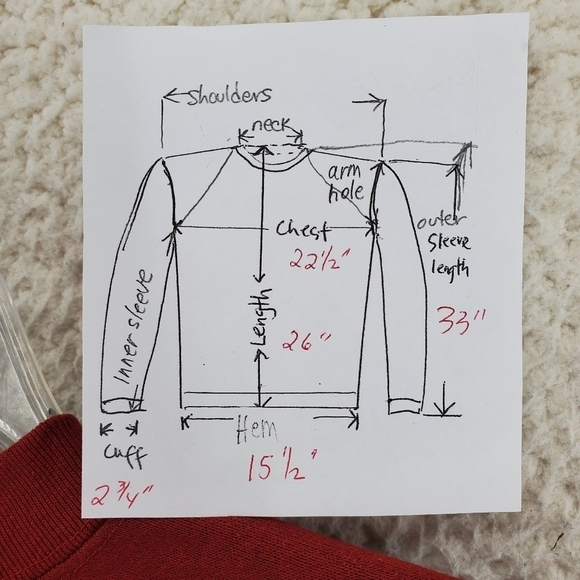 shoulders
neck
arm
hole
Chest
22 1/2"
outer
Sleeve
length
33"
Inner sleeve
Length
26"
Cuff
2 3/4"
Hem
15 1/2"